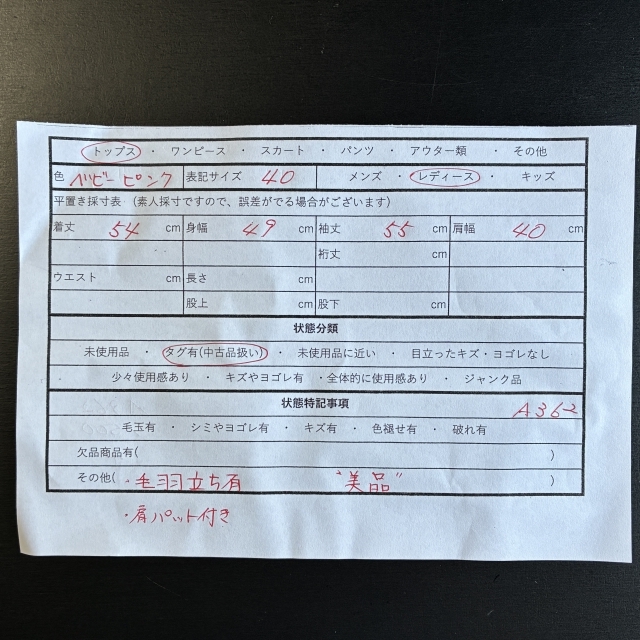 トップス ・ ワンピース ・ スカート ・ パンツ ・ アウター類 ・ その他
色 ベビーピンク 表記サイズ 40 メンズ ・ レディース ・ キッズ
平置き採寸表 (素人採寸ですので、誤差がでる場合がございます)
着丈 54 cm 身幅 49 cm 袖丈 55 cm 肩幅 40 cm
裄丈 cm
ウエスト cm 長さ cm
股上 cm 股下 cm
状態分類
未使用品 ・ タグ有(中古品扱い) ・ 未使用品に近い ・ 目立ったキズ・ヨゴレなし
少々使用感あり ・ キズやヨゴレ有 ・全体的に使用感あり ・ ジャンク品
状態特記事項 A36-2
毛玉有 ・ シミやヨゴレ有 ・ キズ有 ・ 色褪せ有 ・ 破れ有
欠品商品有( )
その他( ・毛羽立ち有 "美品" )
・肩パット付き